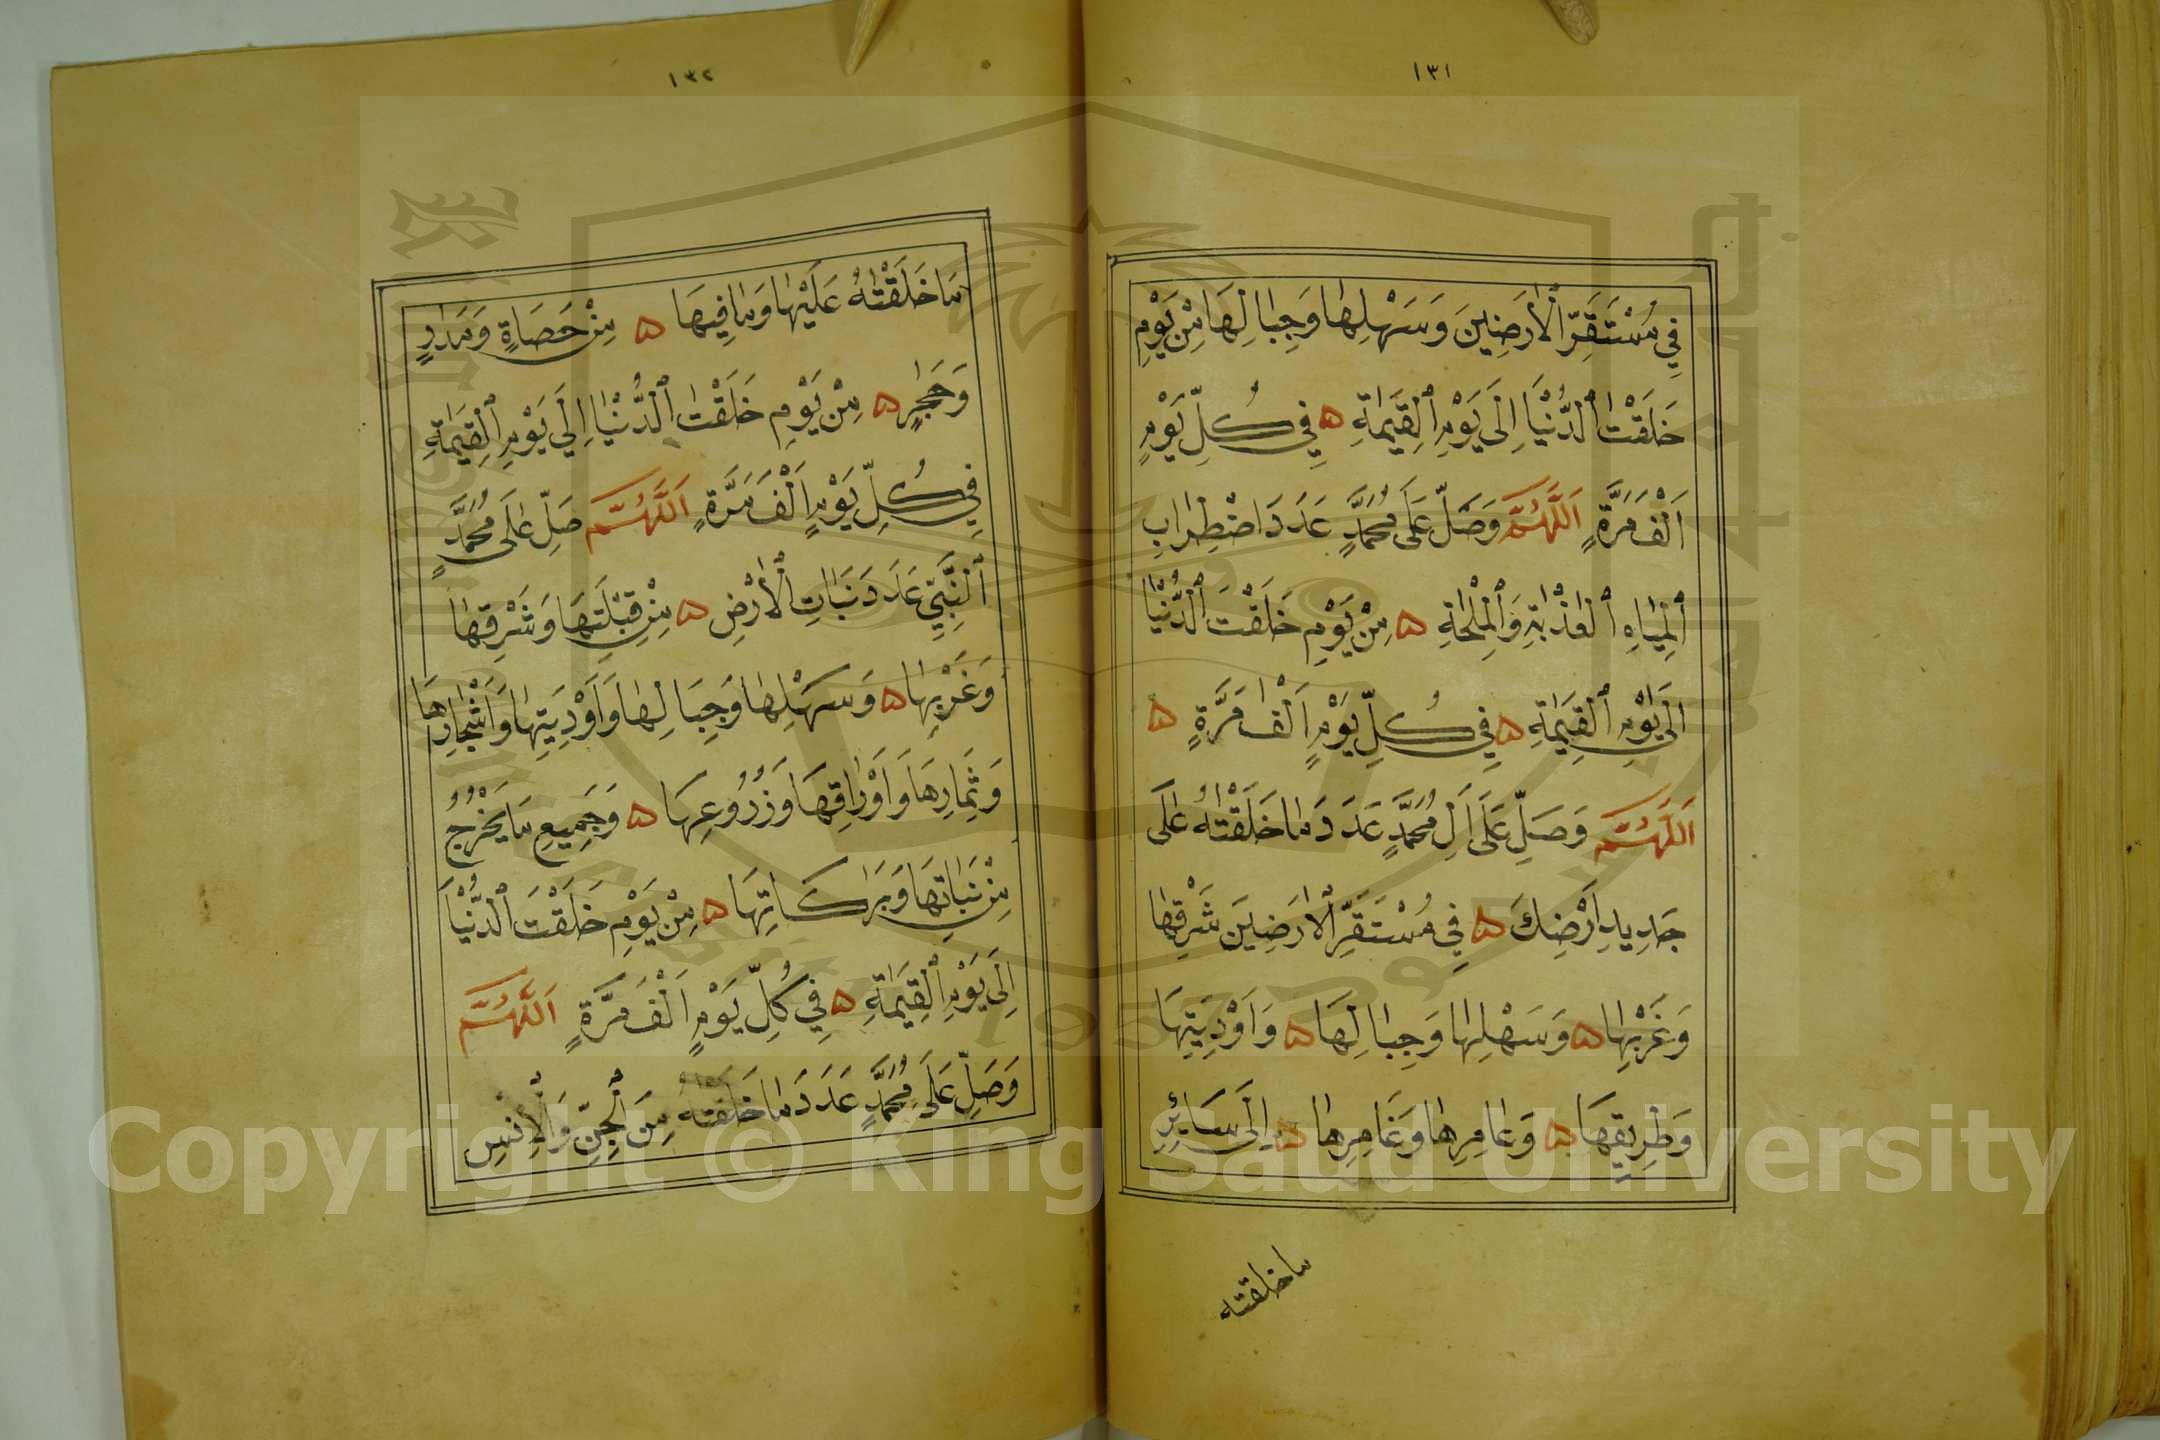 ١٣١
فِي مُسْتَقَرِّ الْأَرَضِينَ وَسَهْلِهَا وَجِبَالِهَا مِنْ يَوْمِ
خَلَقْتَ الدُّنْيَا اِلَى يَوْمِ الْقِيَمَةِ ۞ فِي كُلِّ يَوْمٍ
اَلْفَ مَرَّةٍ اَللَّهُمَّ وَصَلِّ عَلَى مُحَمَّدٍ عَدَدَ اضْطِرَابِ
الْمِيَاهِ الْعَذْبَةِ وَالْمِلْحَةِ ۞ مِنْ يَوْمِ خَلَقْتَ الدُّنْيَا
اِلَى يَوْمِ الْقِيَمَةِ ۞ فِي كُلِّ يَوْمٍ اَلْفَ مَرَّةٍ ۞
اَللَّهُمَّ وَصَلِّ عَلَى اَلِ مُحَمَّدٍ عَدَدَ مَا خَلَقْتَهُ عَلَى
جَدِيدِ اَرْضِكَ ۞ فِي مُسْتَقَرِّ الْأَرَضِينَ شَرْقِهَا
وَغَرْبِهَا ۞ وَسَهْلِهَا وَجِبَالِهَا ۞ وَاَوْدِيَتِهَا
وَطَرِيقِهَا ۞ وَعَامِرِهَا وَغَامِرِهَا ۞ اِلَى سَائِرِ
ما خلقته
١٣٢
مَا خَلَقْتَهُ عَلَيْهَا وَمَا فِيهَا ۞ مِنْ حَصَاةٍ وَمَدَرٍ
وَحَجَرٍ ۞ مِنْ يَوْمِ خَلَقْتَ الدُّنْيَا اِلَى يَوْمِ الْقِيَمَةِ
فِي كُلِّ يَوْمٍ اَلْفَ مَرَّةٍ اَللَّهُمَّ صَلِّ عَلَى مُحَمَّدٍ
النَّبِيِّ عَدَدَ نَبَاتِ الْأَرْضِ ۞ مِنْ قِبْلَتِهَا وَشَرْقِهَا
وَغَرْبِهَا ۞ وَسَهْلِهَا وَجِبَالِهَا وَاَوْدِيَتِهَا وَاَشْجَارِهَا
وَثِمَارِهَا وَاَوْرَاقِهَا وَزُرُوعِهَا ۞ وَجَمِيعِ مَا يَخْرُجُ
مِنْ نَبَاتِهَا وَبَرَكَاتِهَا ۞ مِنْ يَوْمِ خَلَقْتَ الدُّنْيَا
اِلَى يَوْمِ الْقِيَمَةِ ۞ فِي كُلِّ يَوْمٍ اَلْفَ مَرَّةٍ اَللَّهُمَّ
وَصَلِّ عَلَى مُحَمَّدٍ عَدَدَ مَا خَلَقْتَهُ مِنَ الْجِنِّ وَالْاِنْسِ
Copyright © King Saud University
1957